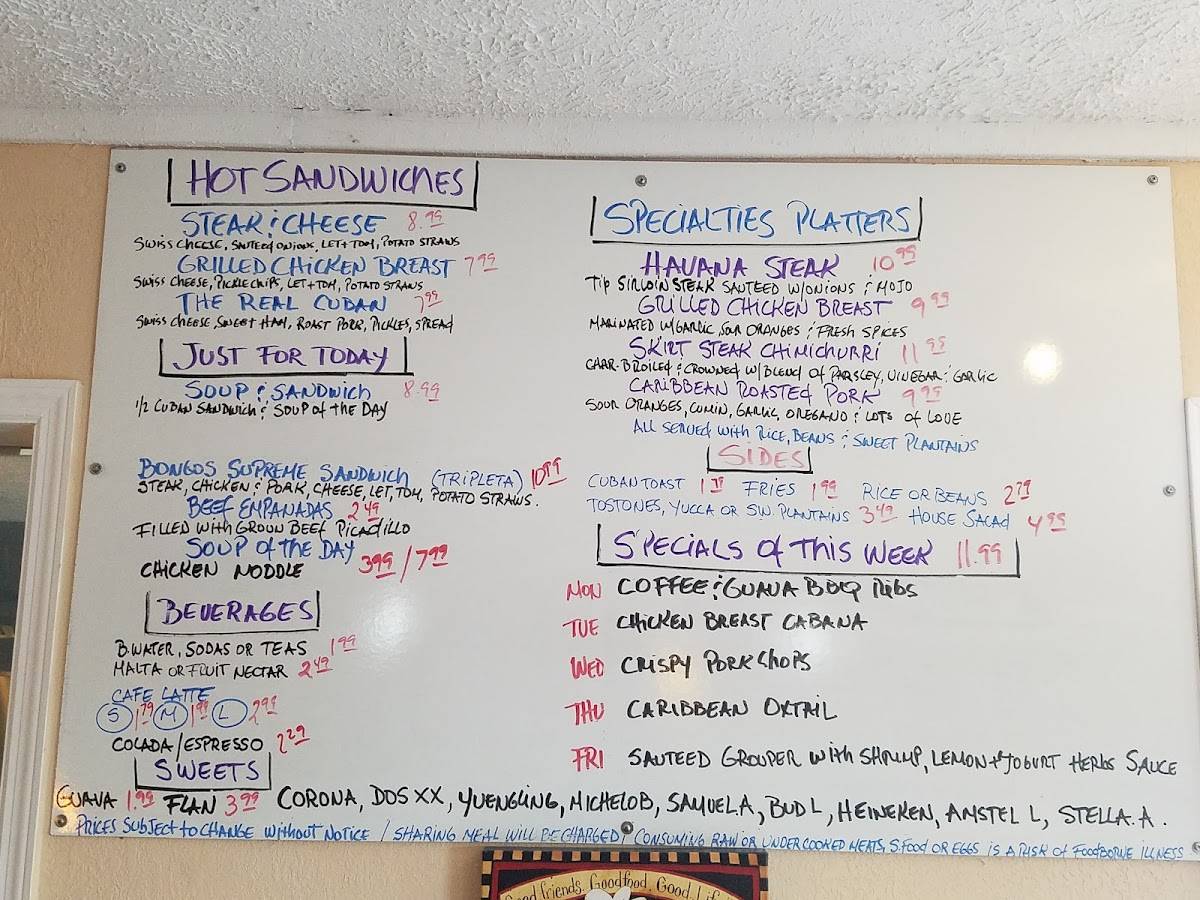 HOT SANDWICHES
STEAK & CHEESE 8.99
SWISS CHEESE, SAUTEED ONIONS, LET+TOM, POTATO STRAWS
GRILLED CHICKEN BREAST 7.99
SWISS CHEESE, PICKLE CHIPS, LET+TOM, POTATO STRAWS
THE REAL CUBAN 7.99
SWISS CHEESE, SWEET HAM, ROAST PORK, PICKLES, SPREAD
JUST FOR TODAY
SOUP & SANDWICH 8.99
1/2 CUBAN SANDWICH & SOUP OF THE DAY
BONGOS SUPREME SANDWICH (TRIPLETA) 10.99
STEAK, CHICKEN & PORK, CHEESE, LET, TOM, POTATO STRAWS.
BEEF EMPANADAS 2.49
FILLED WITH GROUN BEEF PICADILLO
SOUP OF THE DAY 3.99/7.99
CHICKEN NODDLE
BEVERAGES
B.WATER, SODAS OR TEAS 1.99
MALTA OR FRUIT NECTAR 2.49
CAFE LATTE
S 1.79 M 1.99 L 2.99
COLADA/ESPRESSO 2.29
SWEETS
GUAVA 1.99 FLAN 3.99
SPECIALTIES PLATTERS
HAVANA STEAK 10.95
TIP SIRLOIN STEAK SAUTEED W/ONIONS & MOJO
GRILLED CHICKEN BREAST 9.99
MARINATED W/GARLIC, SOUR ORANGES & FRESH SPICES
SKIRT STEAK CHIMICHURRI 11.95
CHAR-BROILED & CROWNED W/BLEND OF PARSLEY, VINEGAR & GARLIC
CARIBBEAN ROASTED PORK 9.95
SOUR ORANGES, CUMIN, GARLIC, OREGANO & LOTS OF LOVE
ALL SERVED WITH RICE, BEANS & SWEET PLANTAINS
SIDES
CUBAN TOAST FRIES 1.99 RICE OR BEANS 2.79
TOSTONES, YUCCA OR SW. PLANTAINS 3.49 HOUSE SALAD 4.99
SPECIALS OF THIS WEEK 11.99
MON COFFEE & GUAVA BBQ RIBS
TUE CHICKEN BREAST CABANA
WED CRISPY PORK CHOPS
THU CARIBBEAN OXTAIL
FRI SAUTEED GROUPER WITH SHRIMP, LEMON+YOGURT HERBS SAUCE
CORONA, DOS XX, YUENGLING, MICHELOB, SAMUEL.A, BUD L, HEINEKEN, AMSTEL L, STELLA.A.
PRICES SUBJECT TO CHANGE WITHOUT NOTICE / SHARING MEAL WILL BE CHARGED / CONSUMING RAW OR UNDERCOOKED MEATS, S.FOOD OR EGGS IS A RISK OF FOODBORNE ILLNESS
Good friends. Good food. Good